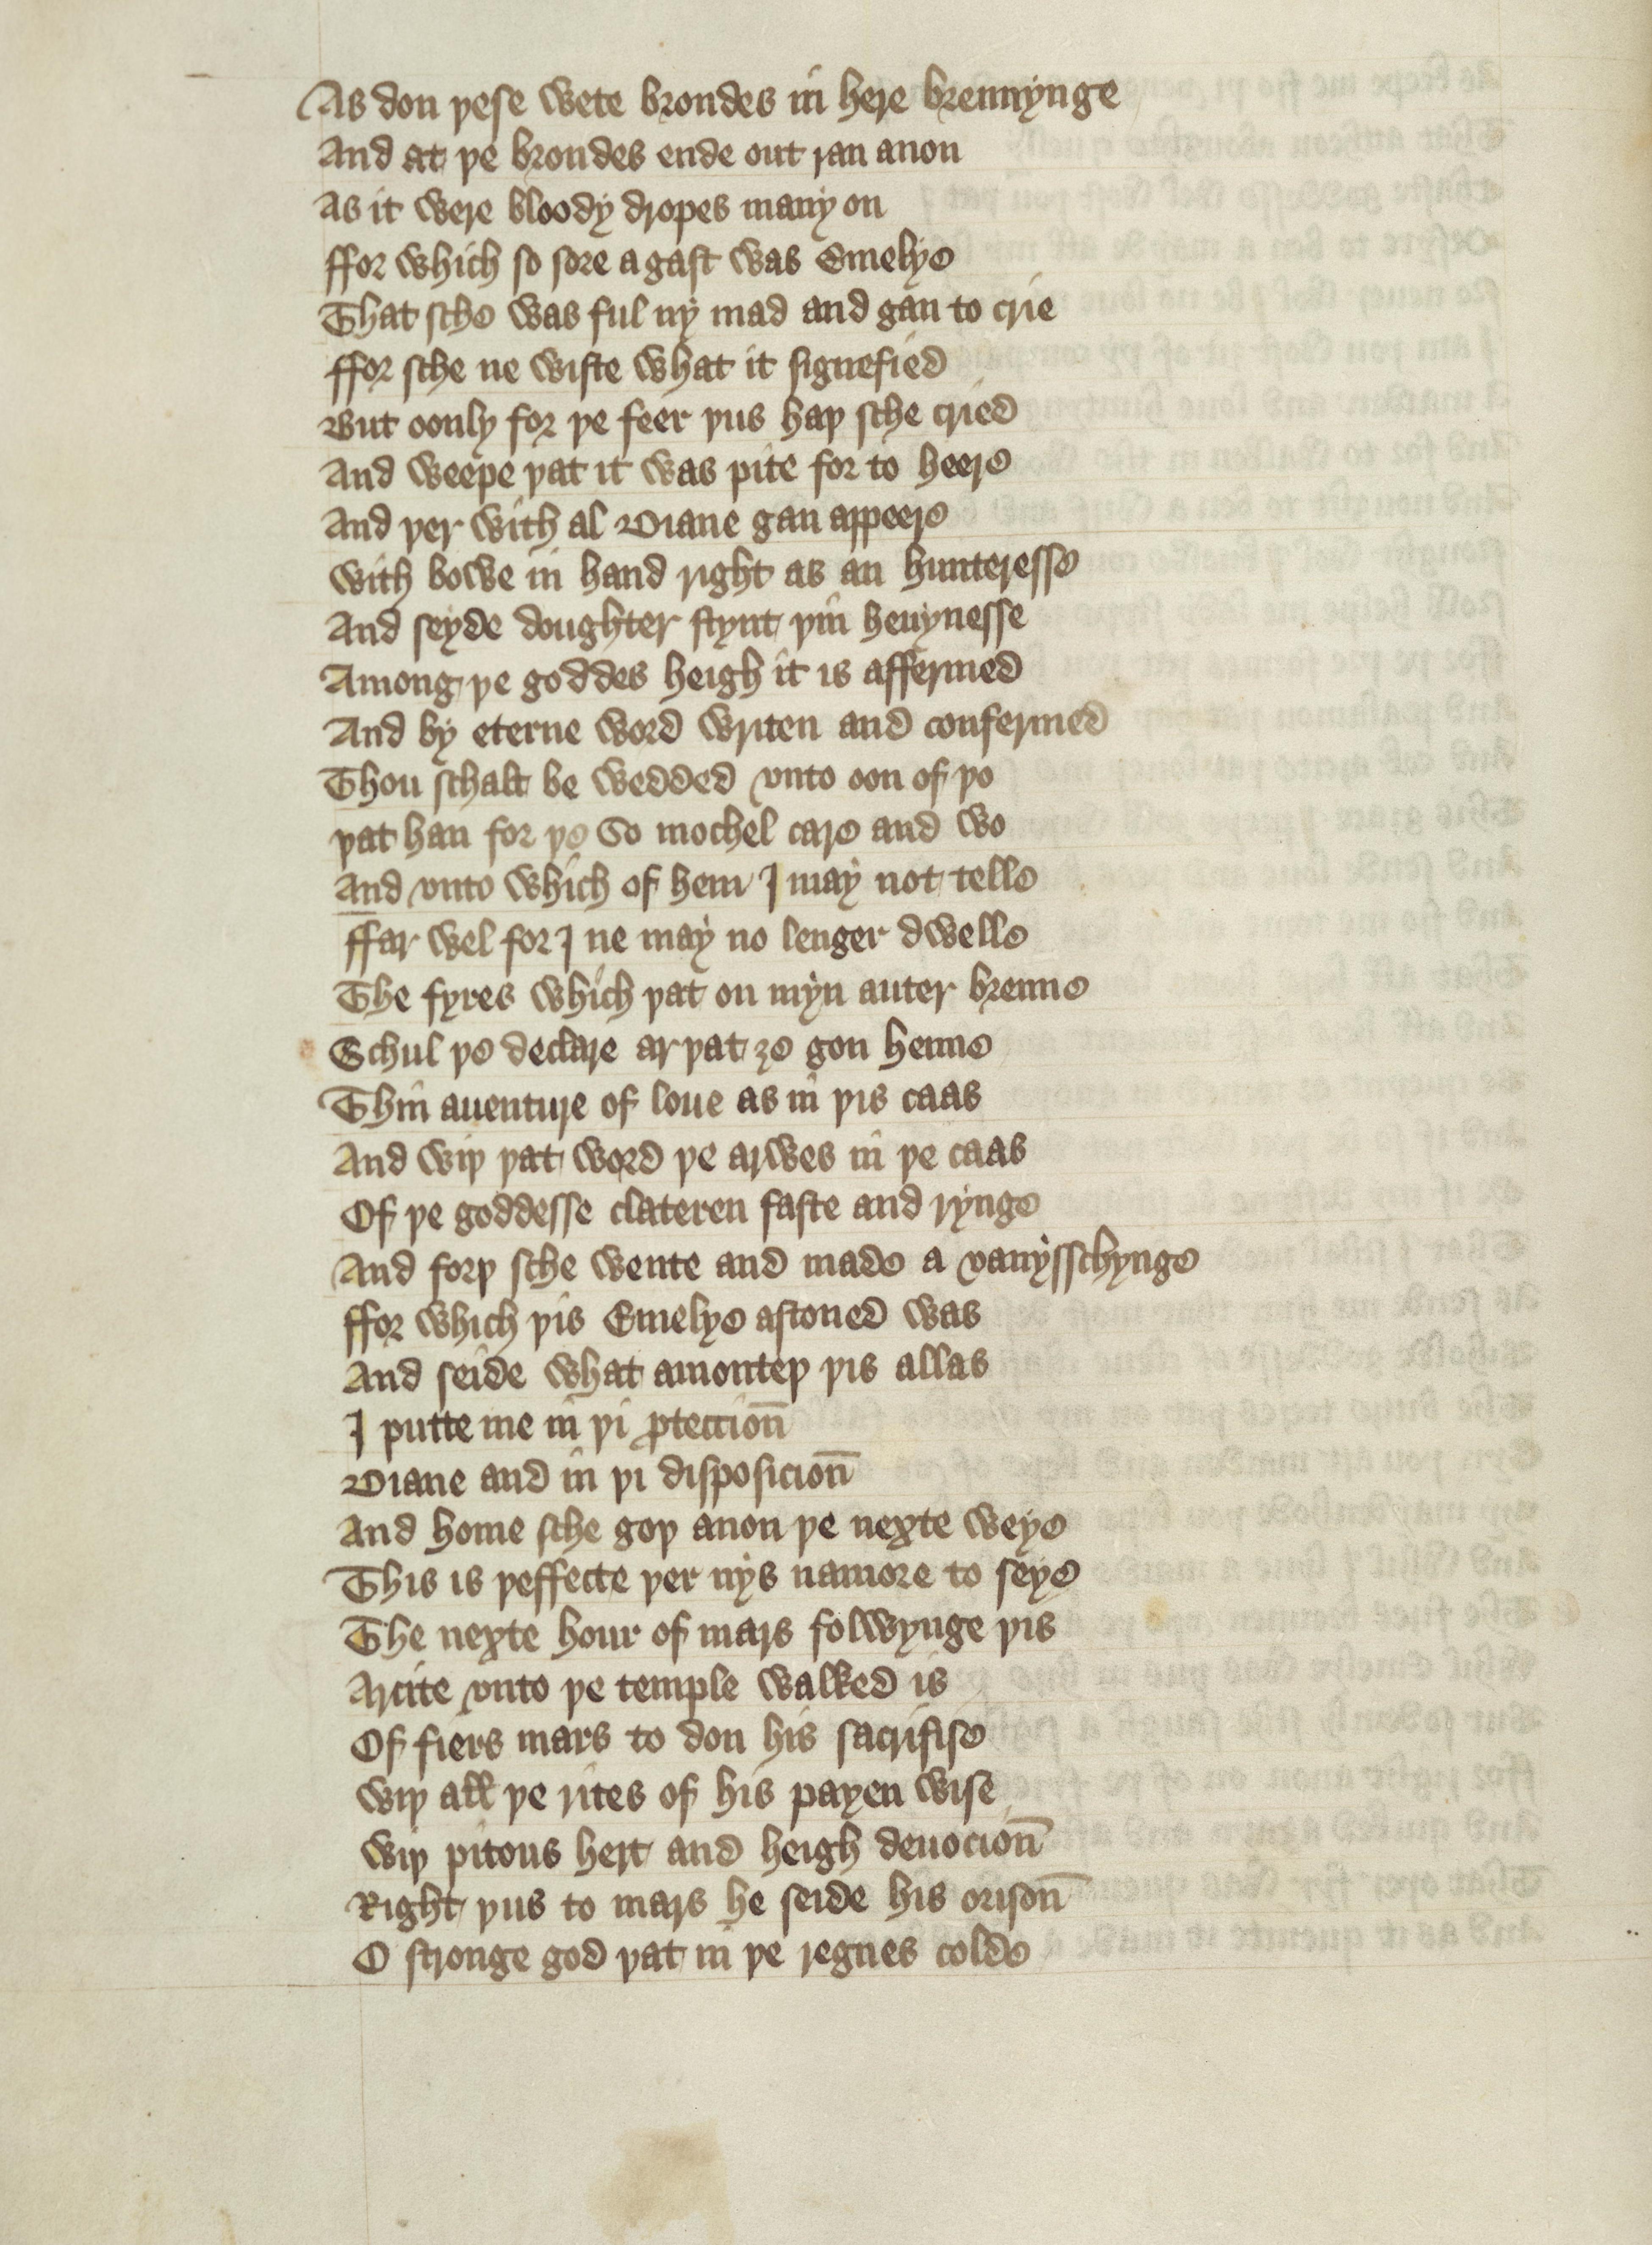 As don þese wete brondes in here brennynge
And at þe brondes ende out ran anon
As it were bloody dropes many on
ffor which so sore agast was Emelye
That sche was ful ny mad and gan to crie
ffor sche ne wiste what it signefied
But oonly for þe feer þus haþ sche cried
And weepe þat it was pite for to heere
And þer with al Diane gan appeere
With bowe in hand right as an hunteresse
And seyde doughter stynt þin heuynesse
Among þe goddes heigh it is affermed
And by eterne word writen and confermed
Thou schalt be wedded vnto oon of þo
þat han for þe So mochel care and wo
And vnto which of hem I may not telle
ffar wel for I ne may no lenger dwelle
The fyres which þat on myn auter brenne
Schul þe declare ar þat ȝe gon henne
Thin auenture of loue as in þis caas
And wiþ þat word þe arwes in þe caas
Of þe goddesse clateren faste and rynge
And forþ sche wente and made a vanysschynge
ffor which þis Emelye astoned was
And seide what amonteþ þis allas
I putte me in þi ꝓteccion̄
Diane and in þi disposicion̄
And home sche goþ anon þe nexte weye
This is þeffecte þer nys namore to seye
The nexte hour of mars folwynge þis
Arcite vnto þe temple walked is
Of fiers mars to don his sacrifise
Wiþ all þe rites of his payen wise
Wiþ pitous hert and heigh deuocion̄
Right þus to mars he seide his orison̄
O stronge god þat in þe regnes colde